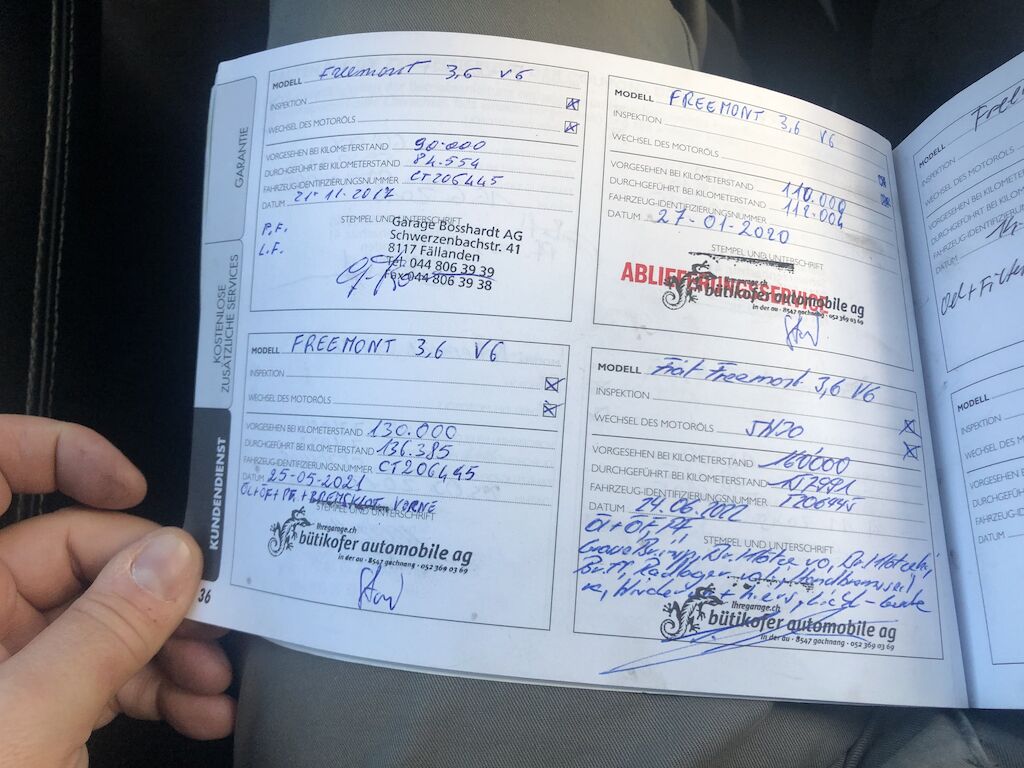 GARANTIE
KOSTENLOSE
ZUSÄTZLICHE SERVICES
KUNDENDIENST
36
MODELL Freemont 3,6 V6
INSPEKTION
WECHSEL DES MOTORÖLS
VORGESEHEN BEI KILOMETERSTAND 90.000
DURCHGEFÜHRT BEI KILOMETERSTAND 84.554
FAHRZEUG-IDENTIFIZIERUNGSNUMMER CT206445
DATUM 21.11.2017
STEMPEL UND UNTERSCHRIFT
P.F.
L.F.
Garage Bosshardt AG
Schwerzenbachstr. 41
8117 Fällanden
Tel. 044 806 39 39
Fax 044 806 39 38
MODELL FREEMONT 3,6 V6
INSPEKTION
WECHSEL DES MOTORÖLS
VORGESEHEN BEI KILOMETERSTAND 110.000
DURCHGEFÜHRT BEI KILOMETERSTAND 112.004
FAHRZEUG-IDENTIFIZIERUNGSNUMMER
DATUM 27-01-2020
STEMPEL UND UNTERSCHRIFT
ABLIEFERUNGSSERVICE
bütikofer automobile ag
in der au · 8547 gachnang · 052 369 03 69
MODELL FREEMONT 3,6 V6
INSPEKTION
WECHSEL DES MOTORÖLS
VORGESEHEN BEI KILOMETERSTAND 130.000
DURCHGEFÜHRT BEI KILOMETERSTAND 136.385
FAHRZEUG-IDENTIFIZIERUNGSNUMMER CT206445
DATUM 25-05-2021
ÖL+ÖF+PF+BREMSKLOT VORNE
STEMPEL UND UNTERSCHRIFT
Ihregarage.ch
bütikofer automobile ag
in der au · 8547 gachnang · 052 369 03 69
MODELL Fiat Freemont 3,6 V6
INSPEKTION
WECHSEL DES MOTORÖLS
VORGESEHEN BEI KILOMETERSTAND 160'000
DURCHGEFÜHRT BEI KILOMETERSTAND 157991
FAHRZEUG-IDENTIFIZIERUNGSNUMMER T206445
DATUM 24.06.2022
Öl + ÖF, PF
STEMPEL UND UNTERSCHRIFT
Ihregarage.ch
bütikofer automobile ag
in der au · 8547 gachnang · 052 369 03 69
MODELL
INSPEKTION
WECHSEL DES MOTORÖLS
VORGESEHEN BEI KILOME
DURCHGEFÜHRT BEI
FAHRZEUG-IDENTIFIZIERU
DATUM
MODELL
INSPEKTION
WECHSEL DES M
VORGESEHEN
DURCHGEFÜ
FAHRZEUG-
DATUM